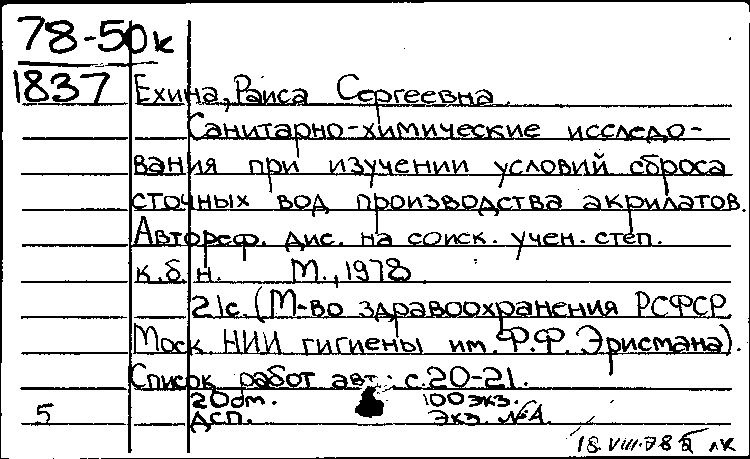 78-50к
1837 Ехина, Раиса Сергеевна.
Санитарно-химические исследо-
вания при изучении условий сброса
сточных вод производства акрилатов.
Автореф. дис. на соиск. учен. степ.
к.б.н. М., 1978
21с. (М-во здравоохранения РСФСР.
Моск. НИИ гигиены им. Ф.Ф. Эрисмана).
Список работ авт.: с. 20-21.
20 от. 100 экз.
5 ДСП. Экз. №А.
18.VIII.78